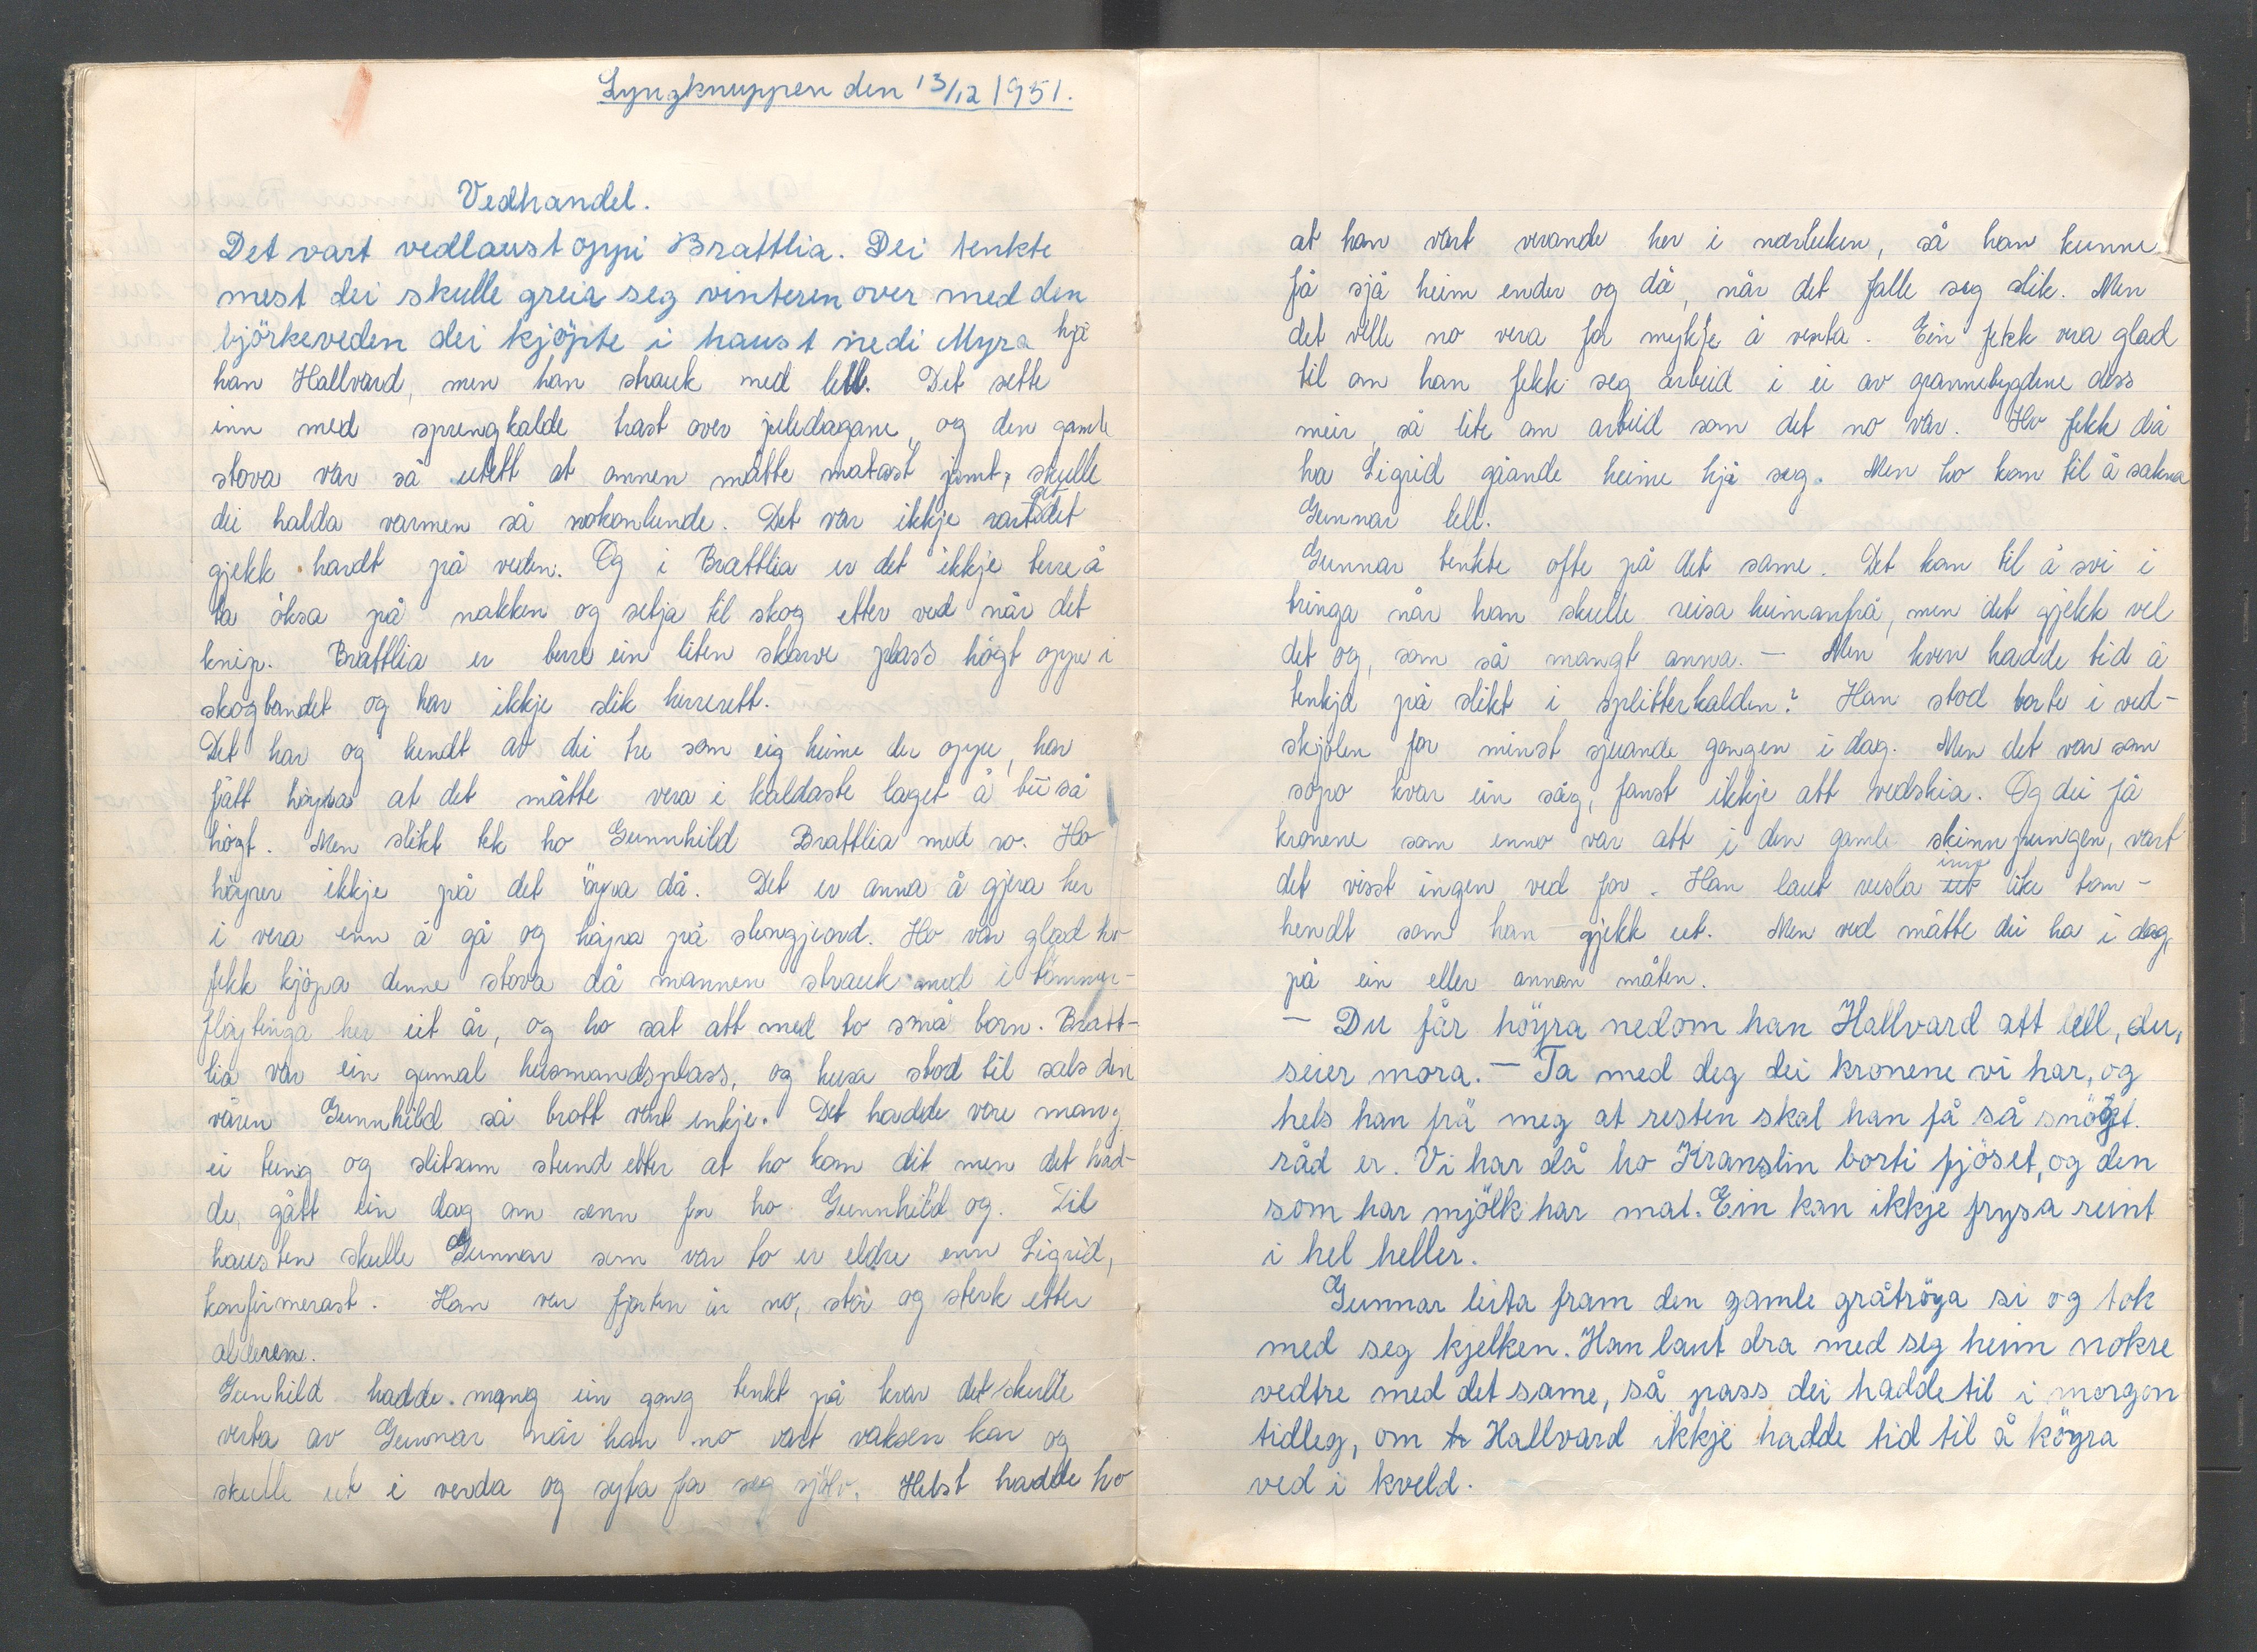 Lyngknuppen den 13/12 1951.
Vedhandel.
Det vart vedlaust oppi Brattlia. Dei tenkte
mest dei skulle greia seg vinteren over med den
björkeveden dei kjöpte i haust nedi Myra hjå
han Hallvard, men han strauk med lell. Det sette
inn med sprengkalde trast over juledagane, og den gamle
stova var så utett at omnen måtte matast jamt, skulle
dei halda varmen så nokonlunde. Det var ikkje rart at det
gjekk hardt på veden. Og i Brattlia er det ikkje berre å
ta öksa på nakken og setja til skog etter ved når det
knip. Brattlia er berre ein liten skarve plass högt oppe i
skogbandet og har ikkje slik herrerett.
Det har og hendt av dei tre som eig heime der oppe, har
fått höyra at det måtte vera i kaldaste laget å bu så
högt. Men slikt tek ho Gunnhild Brattlia med ro. Ho
höyrer ikkje på det öyra då. Det er anna å gjera her
i vera enn å gå og höyra på slengjeord. Ho var glad ho
fekk kjöpa denne stova då mannen strauk med i tömmer-
flöytinga her eit år, og ho sat att med to små born. Bratt-
lia var ein gamal husmandsplass, og husa stod til sals den
våren Gunnhild så brått vart enkje. Det hadde vore mang
ei tung og slitsam stund etter at ho kom dit men det had-
de gått ein dag om senn for ho Gunnhild og. Til
hausten skulle Gunnar som var to år eldre enn Sigrid,
konfirmerast. Han var fjorten år no, stor og sterk etter
alderen.
Gunhild hadde mang ein gong tenkt på kvar det skulle
verta av Gunnar når han no vart vaksen kar og
skulle ut i verda og syta for seg sjölv. Helst hadde ho
at han vart verande her i nærleiken, så han kunne
få sjå heim ender og då, når det falle seg slik. Men
det ville no vera for mykje å venta. Ein fekk vera glad
til om han fekk seg arbeid i ei av grannebygdene dess
meir, så lite om arbeid som det no var. Ho fekk då
ha Sigrid gåande heime hjå seg. Men ho kom til å sakna
Gunnar lell.
Gunnar tenkte ofte på det same. Det kom til å svi i
bringa når han skulle reisa heimanfrå, men det gjekk vel
det og, som så mangt anna. - Men kven hadde tid å
tenkja på slikt i splitterkalden? Han stod borte i ved-
skjölen for minst sjuande gongen i dag. Men det var som
sopo kvar ein såg, fanst ikkje att vedskia. Og dei få
kronene som enno var att i den gamle skinnpungen, vart
det visst ingen ved for. Han laut rusla ut inn like tom-
hendt som han gjekk ut. Men ved måtte dei ha i dag,
på ein eller annan måten.
- Du får höyra nedom han Hallvard att lell, du,
seier mora. - Ta med deg dei kronene vi har, og
hels han frå meg at resten skal han få så snögt
råd er. Vi har då ho Kranslin borti fjöset, og den
som har mjölk har mat. Ein kan ikkje frysa reint
i hel heller.
Gunnar leita fram den gamle gråtröya si og tok
med seg kjelken. Han laut dra med seg heim nokre
vedtre med det same, så pass dei hadde til i morgon
tidleg, om Hallvard ikkje hadde tid til å köyra
ved i kveld.